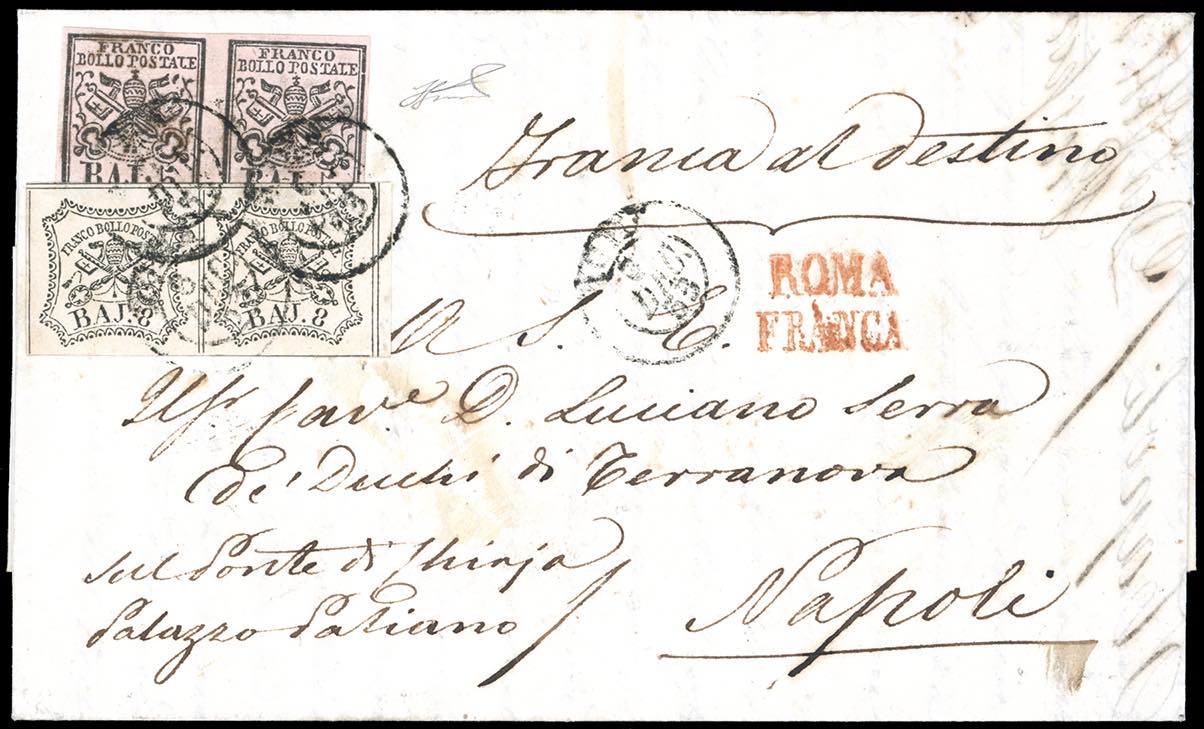 FRANCO
BOLLO POSTALE
BAJ. 5
FRANCO
BOLLO POSTALE
BAJ.
FRANCO BOLLO POST
BAJ. 8
FRANCO BOLLO POST
BAJ. 8
Franca al destino
ROMA
FRANCA
A S. E.
Cave D. Luciano Serra
de' Duchi di Terranova
sul Ponte di Chiaja
Palazzo
Napoli